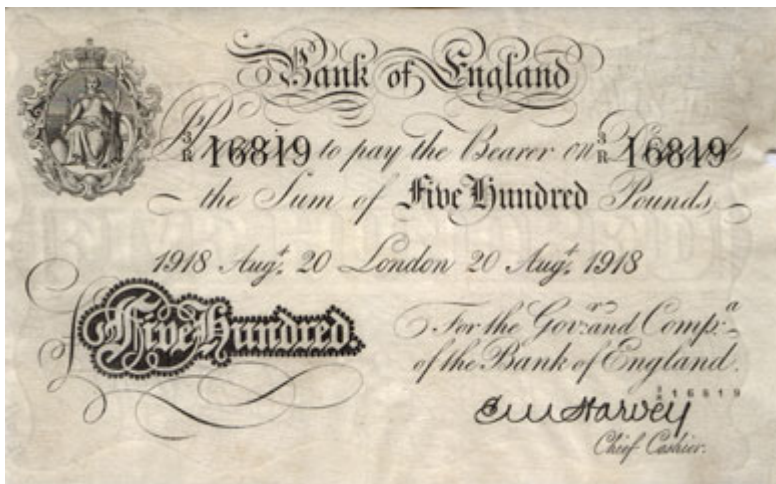 Bank of England
3/R 16819 to pay the Bearer on 3/R 16819
the Sum of Five Hundred Pounds
1918 Augt. 20 London 20 Augt. 1918
£ Five Hundred.
For the Govr. and Compa.
of the Bank of England.
3/R 16819
E M Harvey
Chief Cashier.